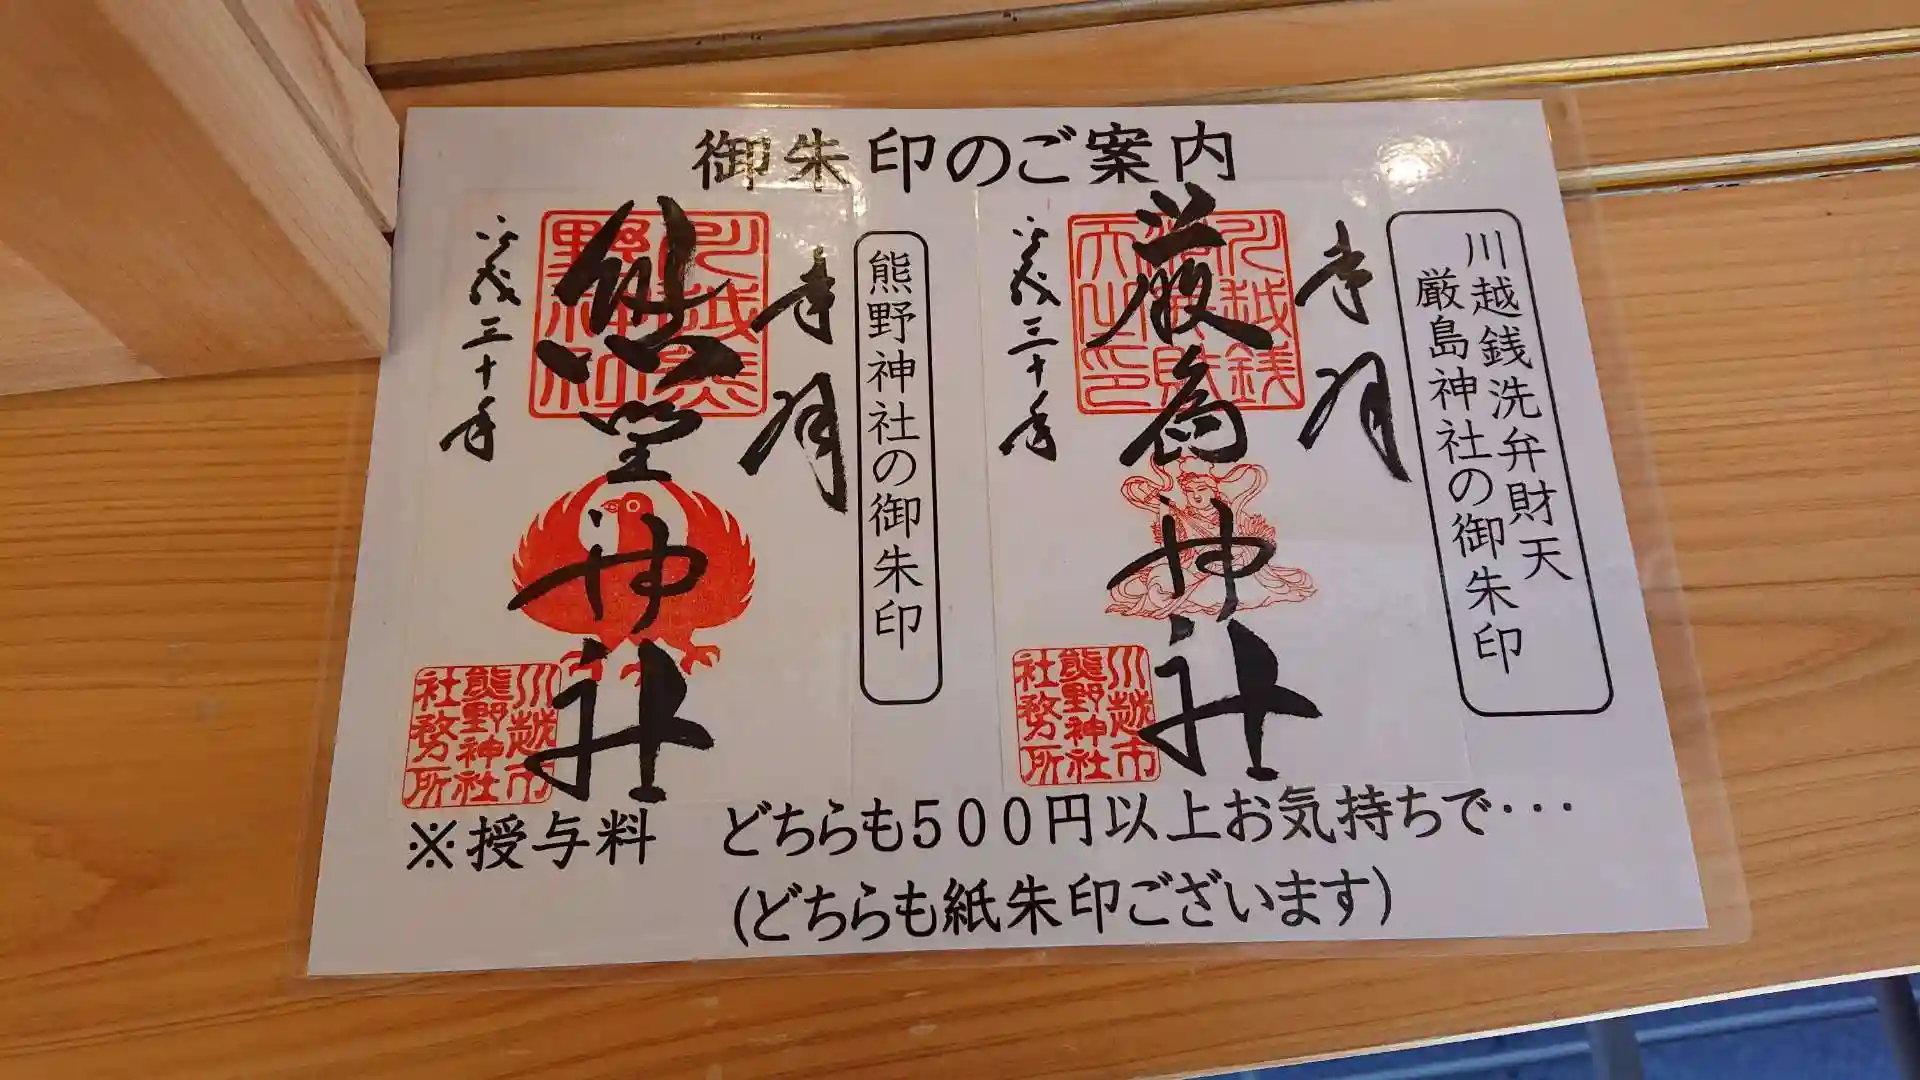 御朱印のご案内
川越銭洗弁財天
厳島神社の御朱印
奉拝
厳島神社
平成三十年
川越市
熊野神社
社務所
熊野神社の御朱印
奉拝
熊野神社
平成三十年
川越市
熊野神社
社務所
※授与料 どちらも500円以上お気持ちで・・・
(どちらも紙朱印ございます)